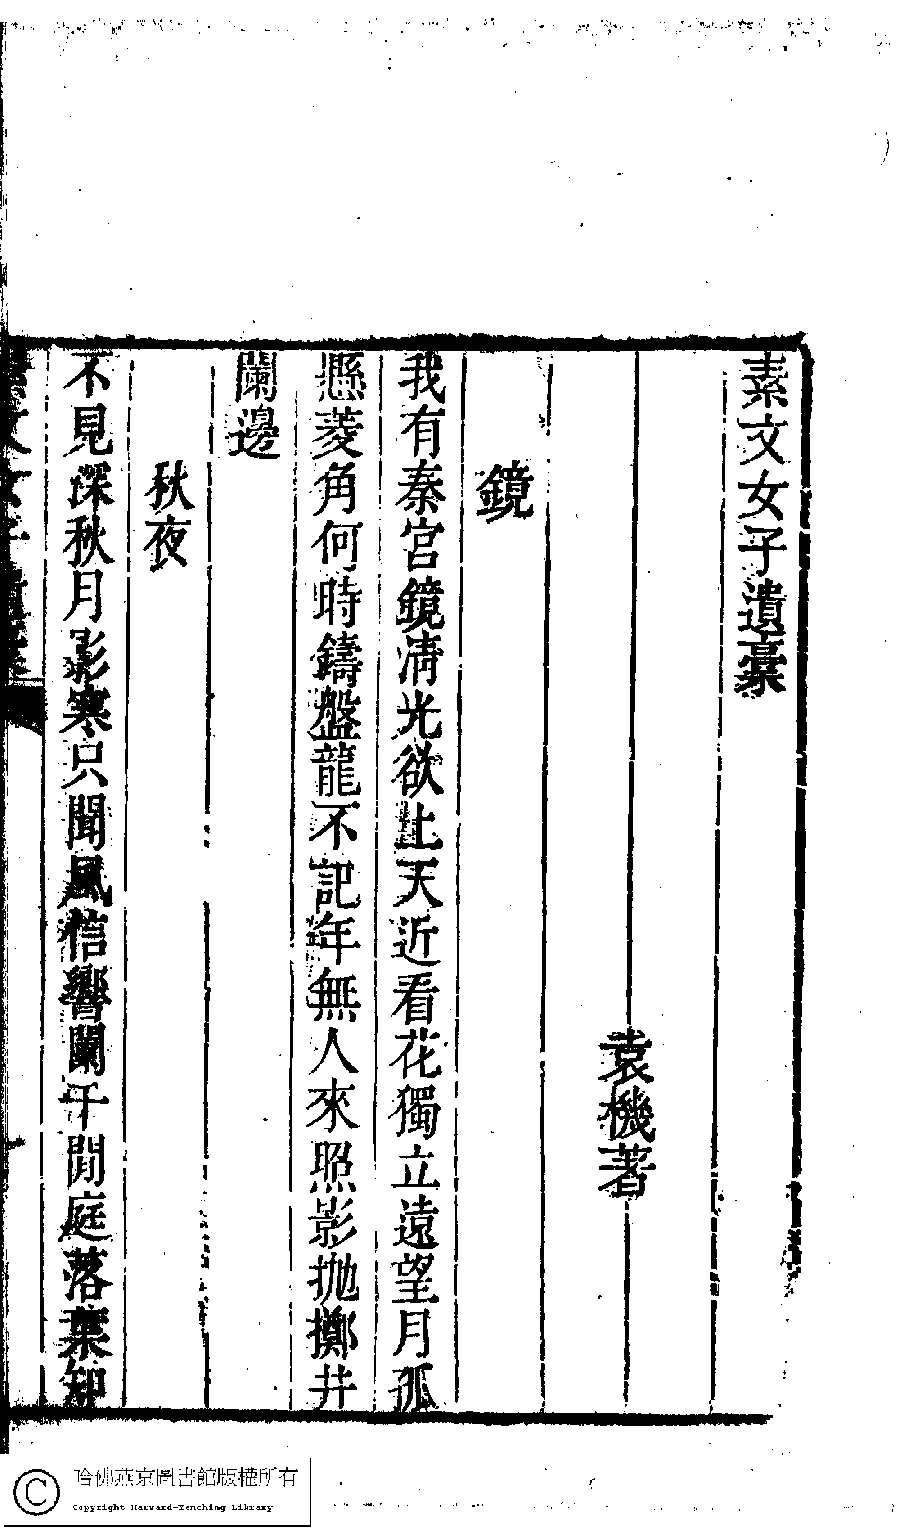 素文女子遺稾
袁機著
鏡
我有秦宮鏡清光欲上天近看花獨立遠望月孤
懸菱角何時鑄盤龍不記年無人來照影拋擲井
闌邊
秋夜
不見深秋月影寒只聞風信響闌干閒庭落葉知
素文女子遺稾
哈佛燕京圖書館版權所有
Copyright Harvard-Yenching Library